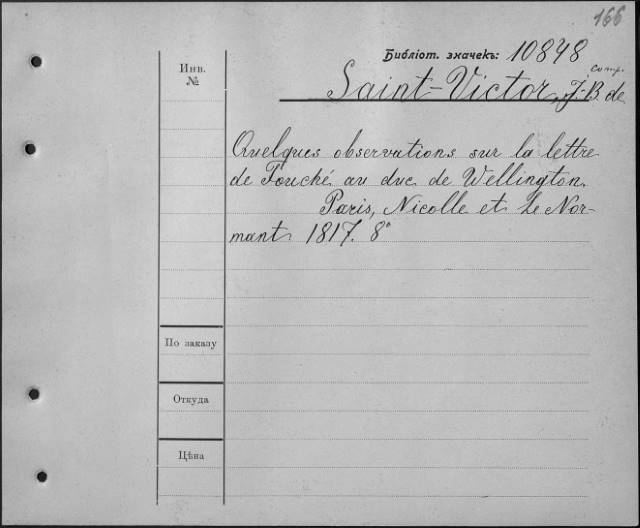 166
Библіот. значекъ: 10848
comp.
Saint-Victor, J.-B. de
Инв.
№
Quelques observations sur la lettre
de Fouché au duc de Wellington.
Paris, Nicolle et Le Nor-
mant 1817. 8°
По заказу
Откуда
Цѣна